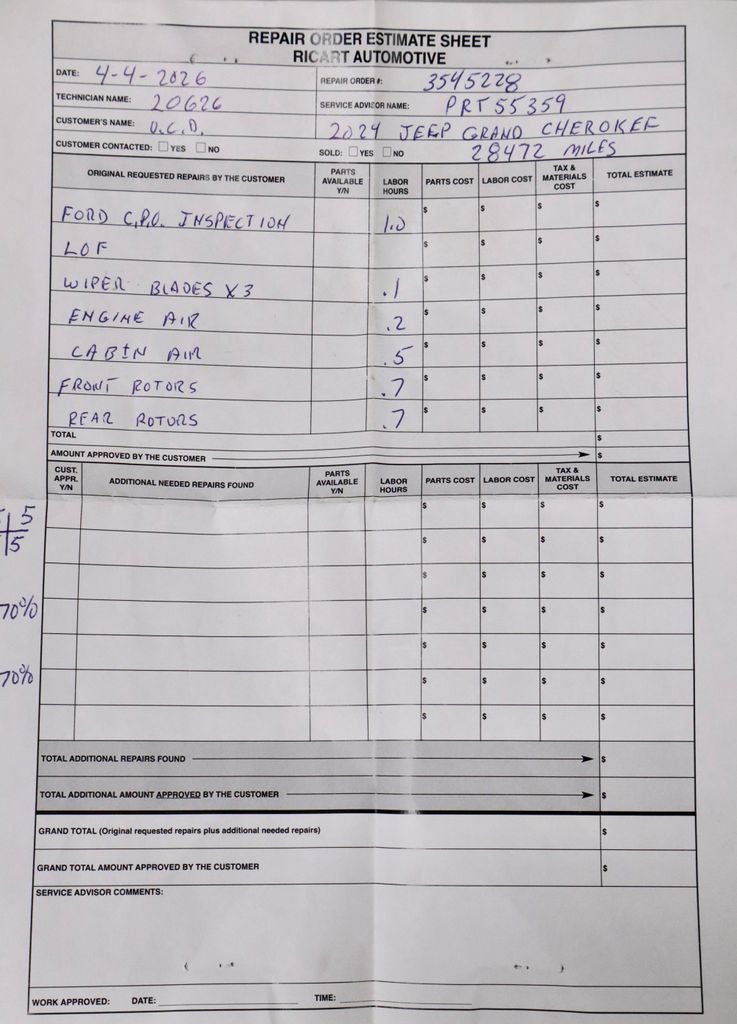 REPAIR ORDER ESTIMATE SHEET
RICART AUTOMOTIVE
DATE: 4-4-2026 REPAIR ORDER #: 3545228
TECHNICIAN NAME: 20626 SERVICE ADVISOR NAME: PRT55359
CUSTOMER'S NAME: U.C.D. 2024 JEEP GRAND CHEROKEE
CUSTOMER CONTACTED: YES NO SOLD: YES NO 28472 MILES
ORIGINAL REQUESTED REPAIRS BY THE CUSTOMER PARTS AVAILABLE Y/N LABOR HOURS PARTS COST LABOR COST TAX & MATERIALS COST TOTAL ESTIMATE
FORD C.P.O. INSPECTION 1.0 $ $ $ $
LOF $ $ $ $
WIPER BLADES X3 .1 $ $ $ $
ENGINE AIR .2 $ $ $ $
CABIN AIR .5 $ $ $ $
FRONT ROTORS .7 $ $ $ $
REAR ROTORS .7 $ $ $ $
TOTAL $
AMOUNT APPROVED BY THE CUSTOMER $
CUST. APPR. Y/N ADDITIONAL NEEDED REPAIRS FOUND PARTS AVAILABLE Y/N LABOR HOURS PARTS COST LABOR COST TAX & MATERIALS COST TOTAL ESTIMATE
5 $ $ $ $
5 $ $ $ $
$ $ $ $
70% $ $ $ $
$ $ $ $
70% $ $ $ $
$ $ $ $
TOTAL ADDITIONAL REPAIRS FOUND $
TOTAL ADDITIONAL AMOUNT APPROVED BY THE CUSTOMER $
GRAND TOTAL (Original requested repairs plus additional needed repairs) $
GRAND TOTAL AMOUNT APPROVED BY THE CUSTOMER $
SERVICE ADVISOR COMMENTS:
WORK APPROVED: DATE: TIME: